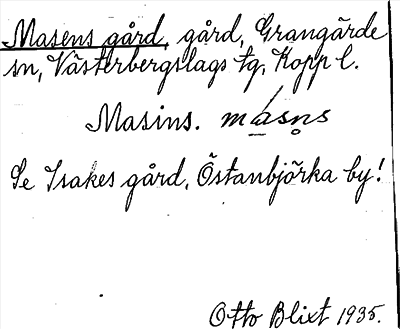 Masens gård, gård, Grangärde
sn, Västerbergslags tg, Kopp l.
Masins. másn̥s
Se Isakes gård, Östanbjörka by!
Otto Blixt 1935.